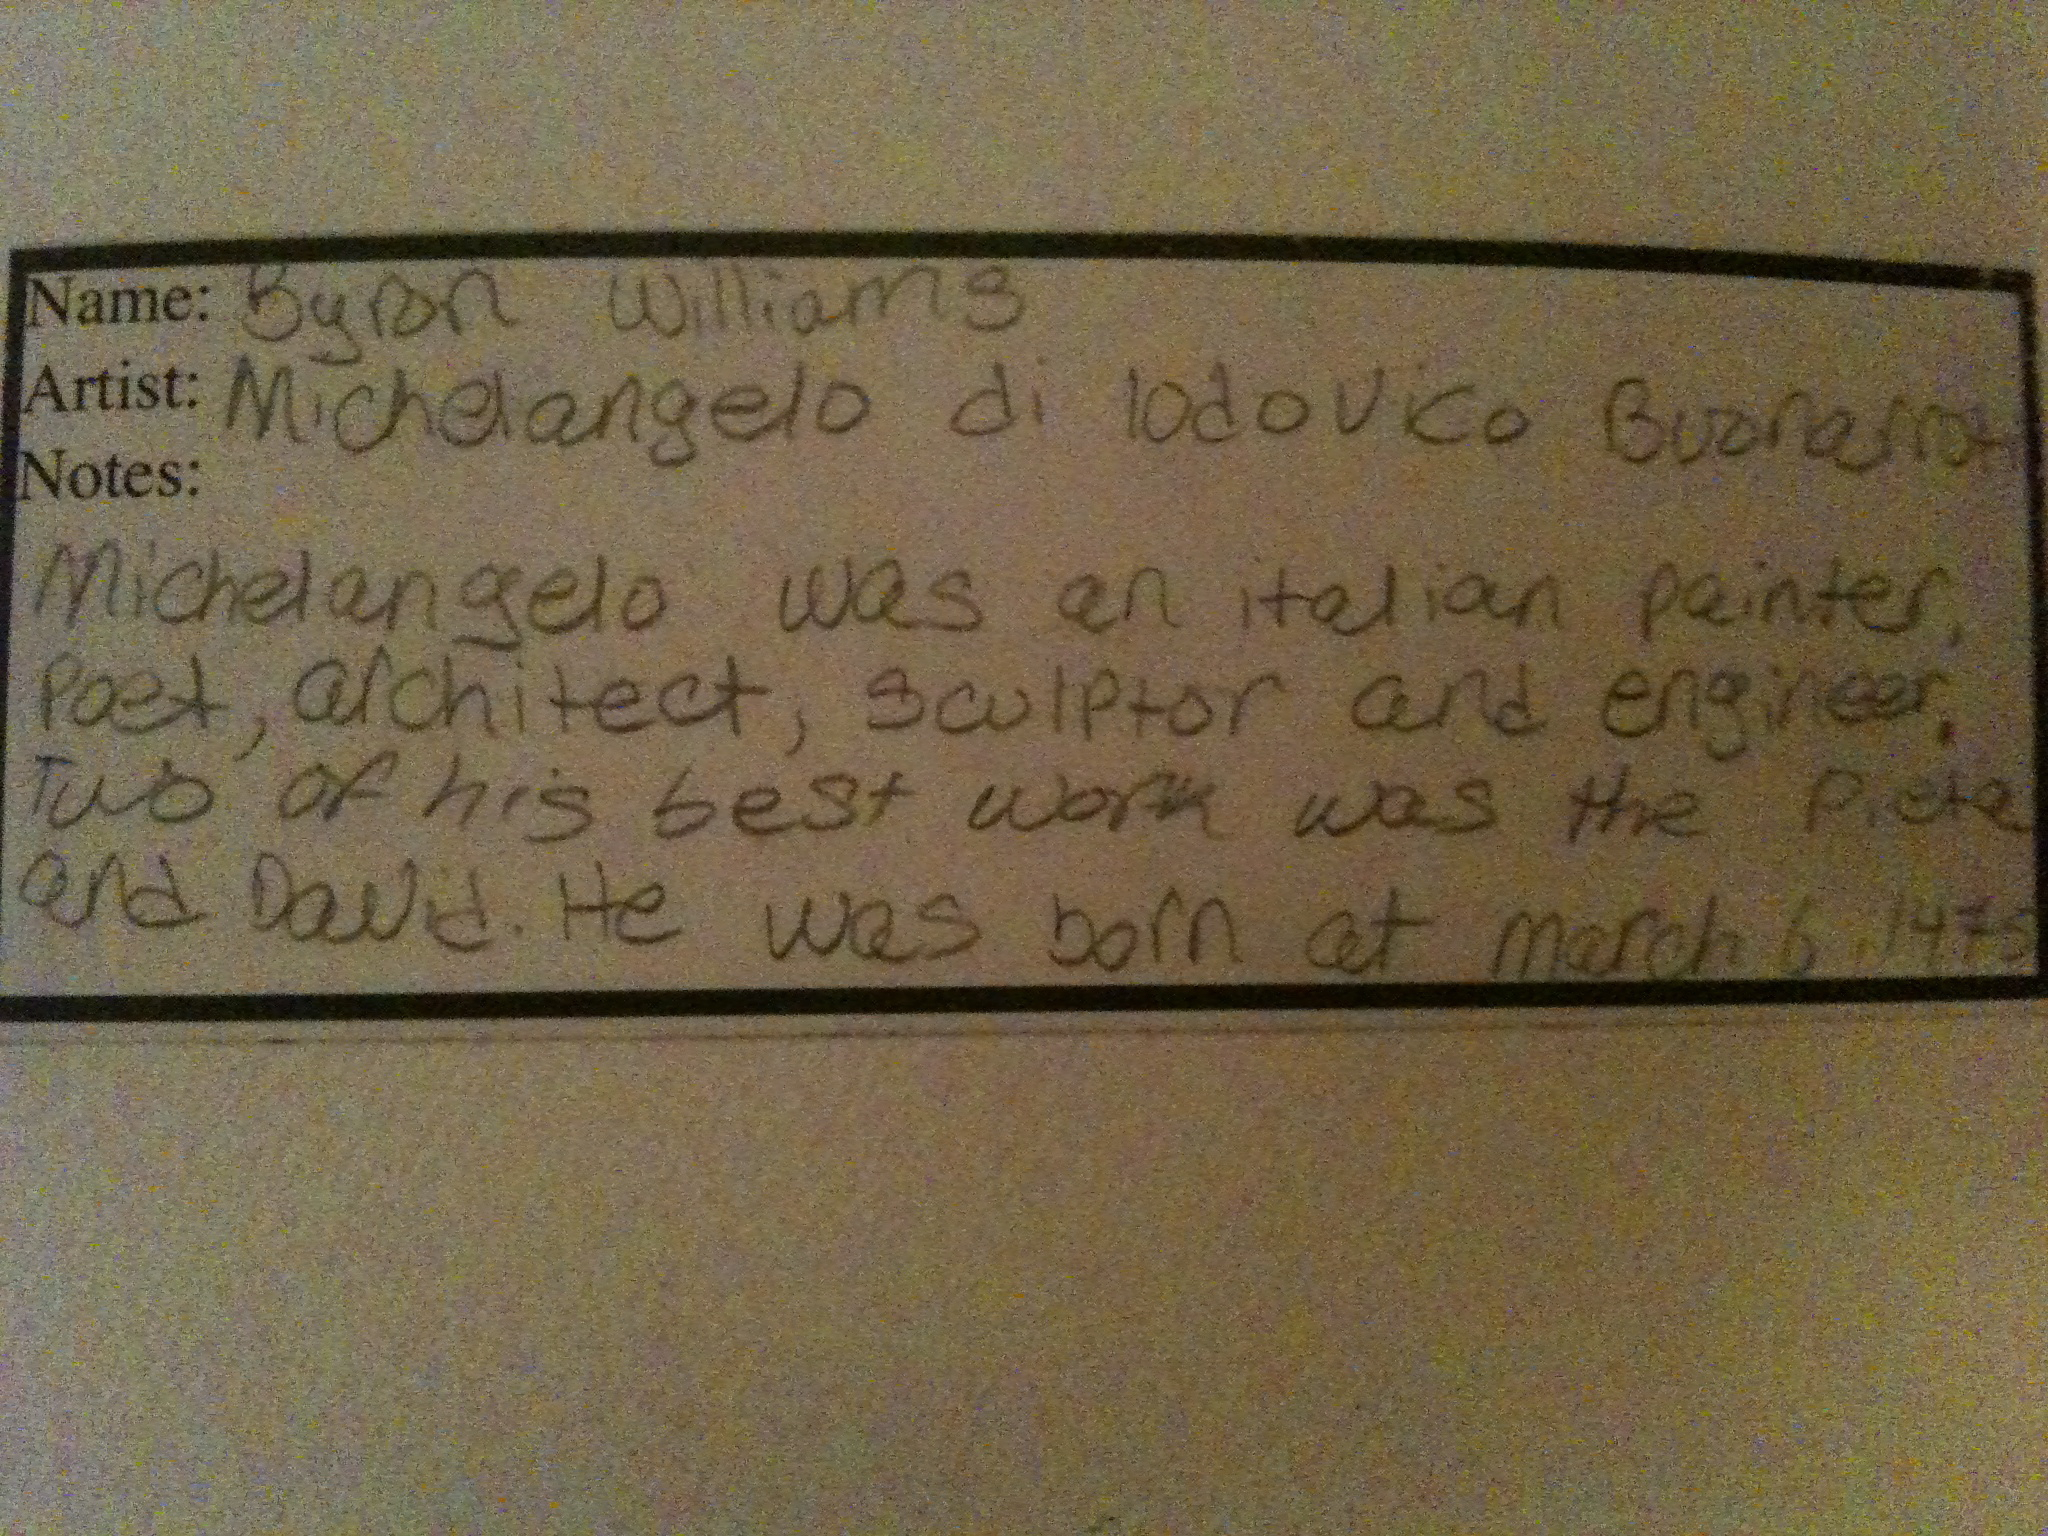 Name: Byron Williams
Artist: Michelangelo di lodovico
Notes:
Michelangelo was an italian painter,
Poet, architect, sculptor and engineer.
Two of his best work was the Pieta
and David. He was born at march 6, 1475